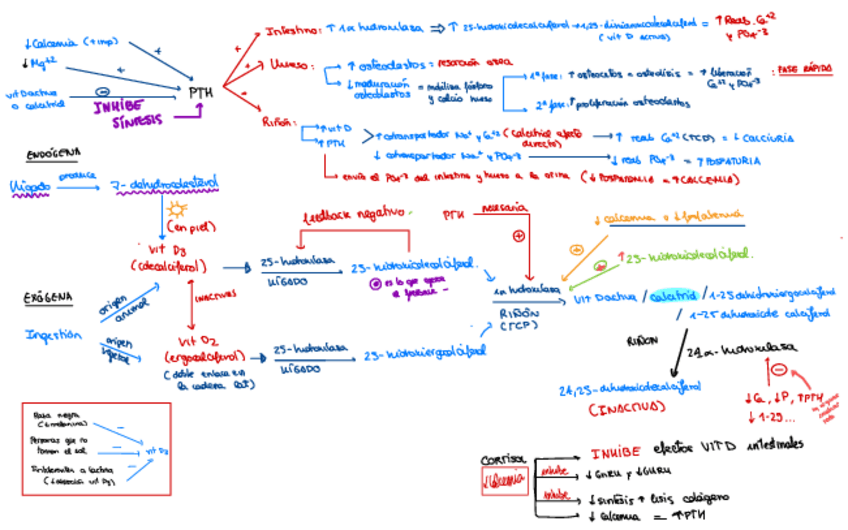 ↓ Calcemia (+ imp)
↓ Mg+2
vit D activa
o calcitriol
INHIBE
SÍNTESIS
PTH
Intestino: ↑ 1α hidroxilasa ⇒ ↑ 25-hidroxicolecalciferol → 1,25-
(vit D activa)
= ↑ Reab. Ca+2
y PO4-3
Hueso:
↑ osteoclastos = resorción ósea
↓ maduración
osteoblastos = moviliza fósforo
y calcio hueso
1ª fase: ↑ osteocitos = osteolisis = ↑ liberación
Ca+2 y PO4-3
: FASE RÁPIDA
2ª fase: ↑ proliferación osteoclastos
Riñón:
↑ vit D
↑ PTH
↑ cotransportador Na+ y Ca+2 (calcitriol efecto
directo)
→ ↑ reab Ca+2 (TCD) = ↓ CALCIURIA
↓ cotransportador Na+ y PO4-3 → ↓ reab PO4-3 = ↑ FOSFATURIA
envía el PO4-3 del intestino y hueso a la orina (↓ FOSFATEMIA = ↑ CALCEMIA)
ENDÓGENA
Hígado
produce
7-dehidrocolesterol
(en piel)
vit D3
(colecalciferol)
INACTIVAS
EXÓGENA
Ingestión
origen
animal
origen
vegetal
vit D2
(ergocalciferol)
(doble enlace en
la cadena lat)
feedback negativo
25-hidroxilasa
HÍGADO
25-hidroxicolecalciferol
es lo que
el
25-hidroxilasa
HÍGADO
25-hidroxiergocalciferol
PTH
necesaria
↓ calcemia o ↓ fosfatemia
↑ 25-hidroxicolecalciferol
1α hidroxilasa
RIÑÓN
(TCP)
vit D activa / calcitriol / 1-25 dihidroxiergocalciferol
/ 1-25 dihidroxicolecalciferol
RIÑÓN
24 α-hidroxilasa
24,25-dihidroxicolecalciferol
(INACTIVA)
↓ Ca, ↓ P, ↑ PTH
↓ 1-25...
Raza negra
(↑ melanina)
Personas que no
toman el sol
vit D3
Intolerantes a lactosa
(↓ absorción vit D3)
CORTISOL
INHIBE efectos VIT D intestinales
inhibe
↓ GnRH y ↓ GHRH
inhibe
↓ síntesis ↑ lisis colágeno
↓ calcemia = ↑ PTH